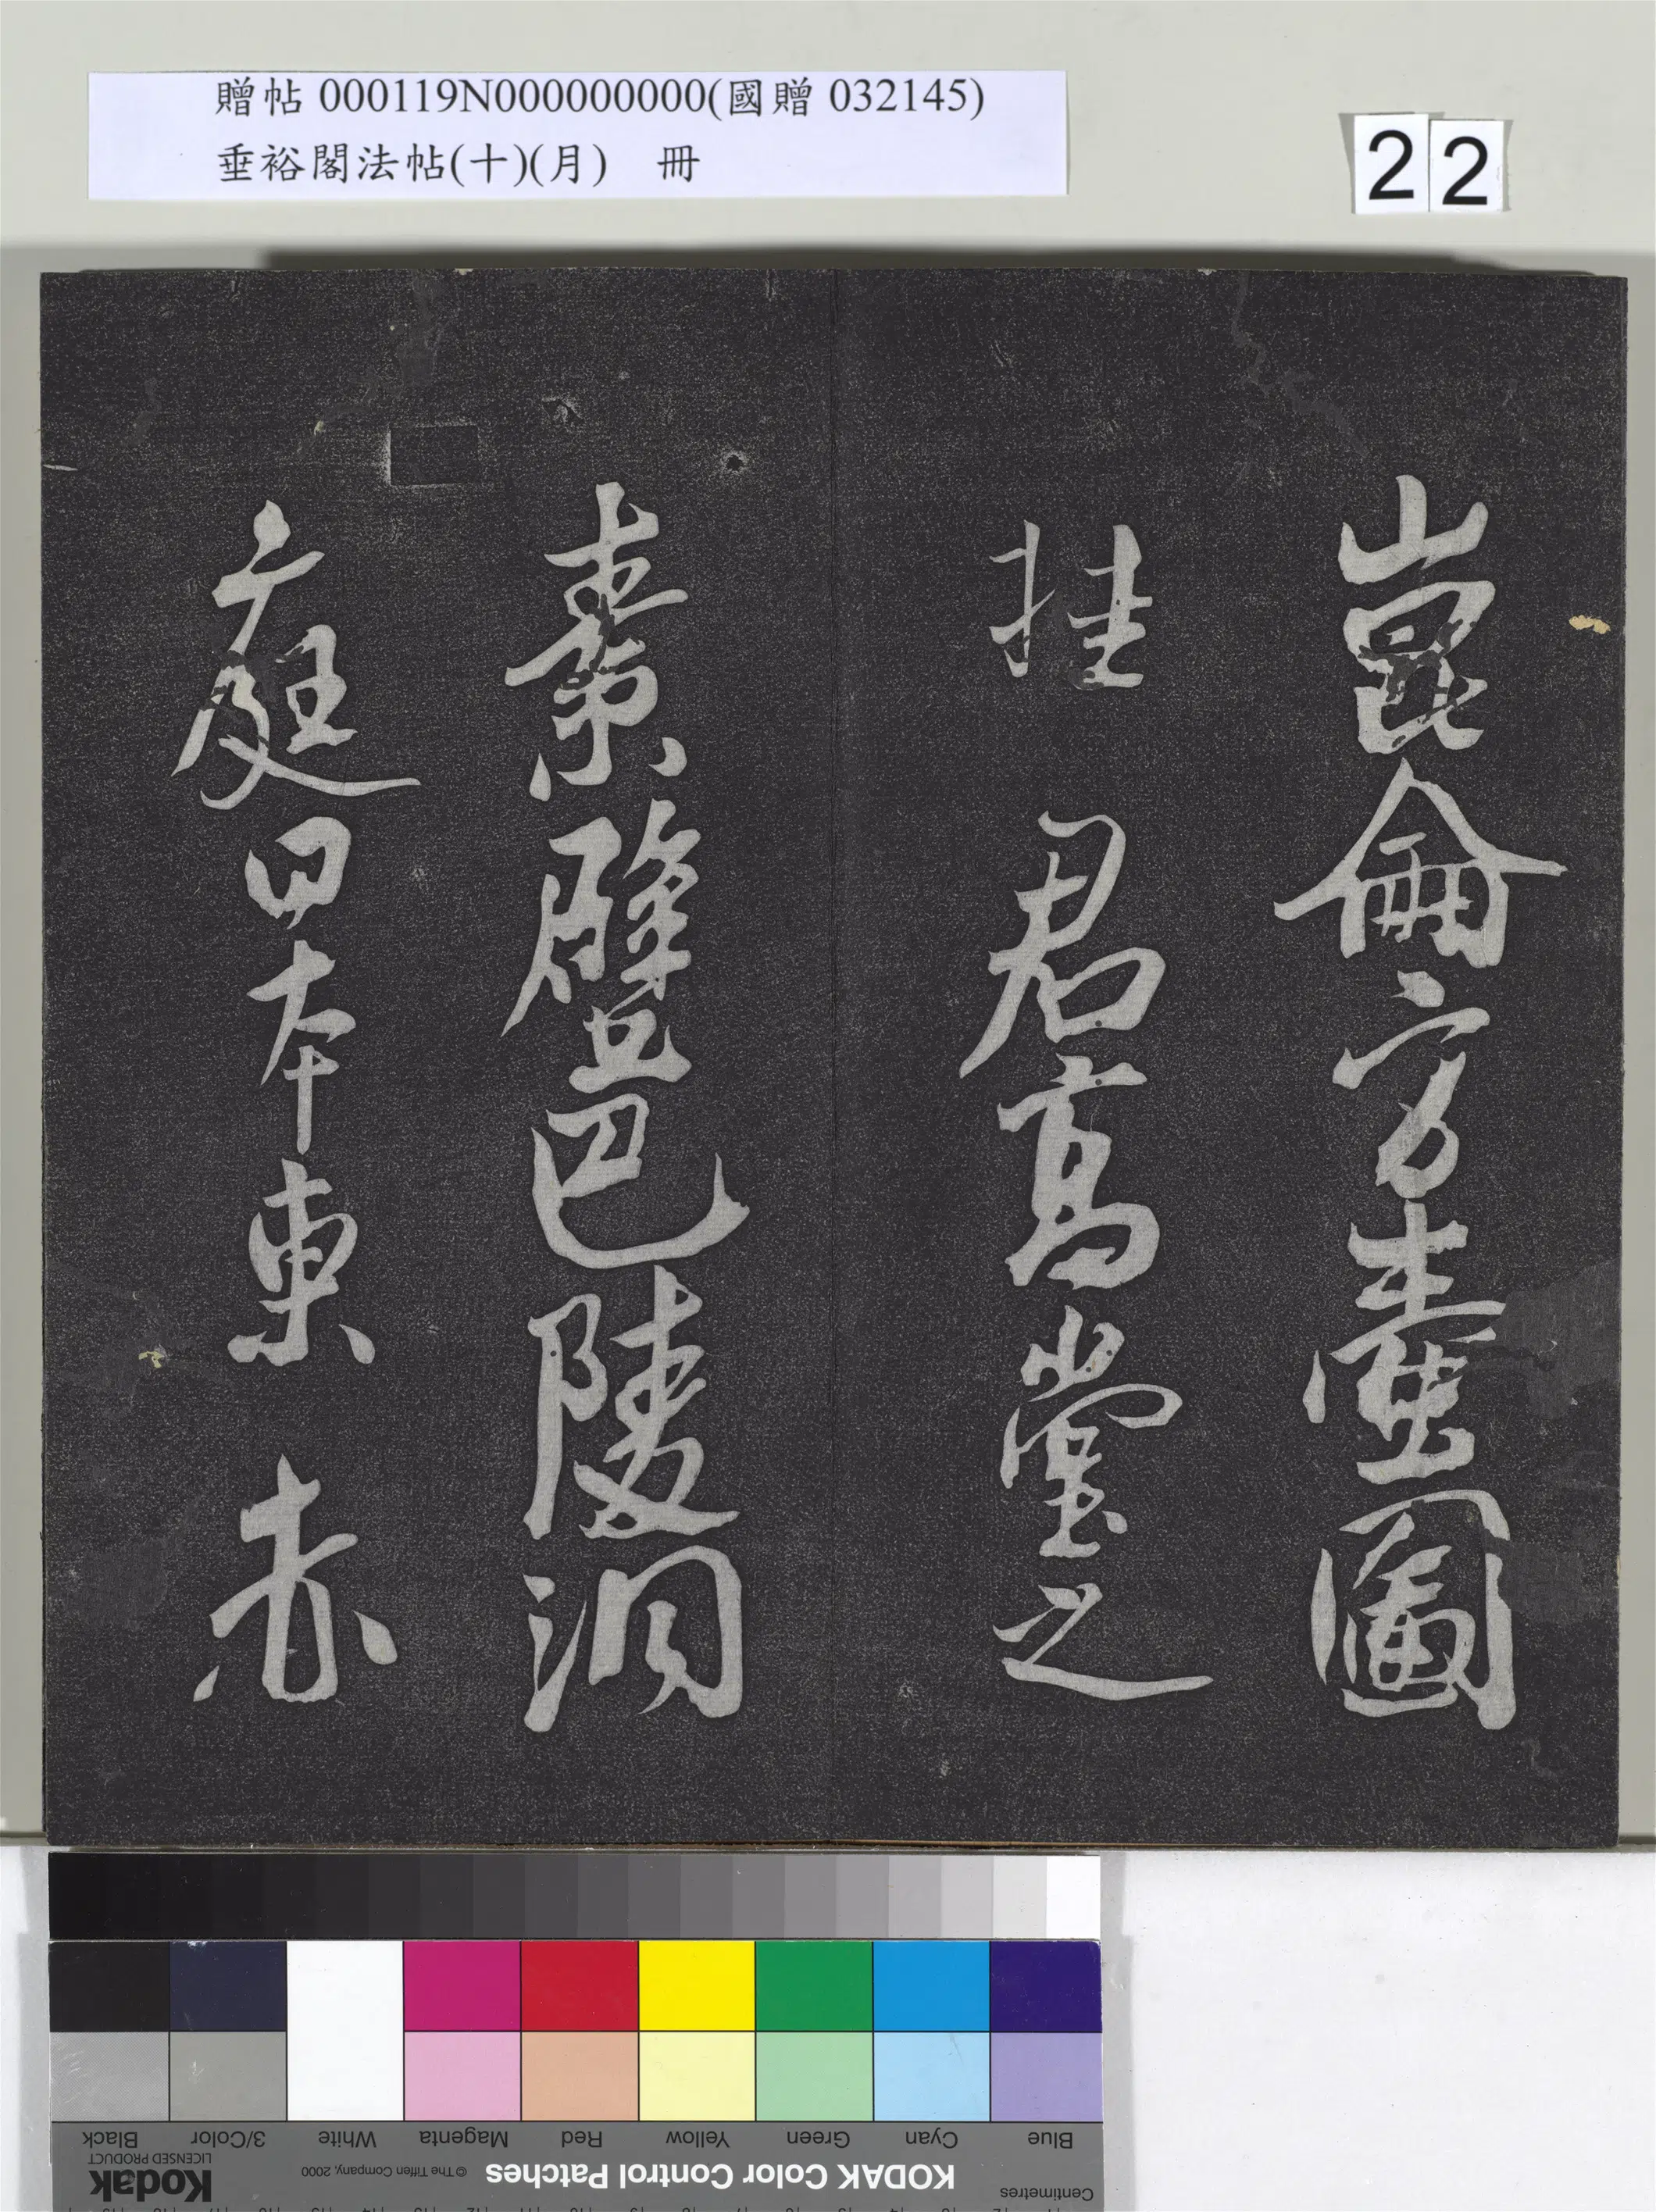 贈帖 000119N000000000(國贈 032145)
垂裕閣法帖(十)(月) 冊
22
崑崙方壺圖
挂 君高堂之
素壁巴陵洞
庭日本東 赤
Blue
Cyan
Green
Yellow
Red
Magenta
White
3/Color
Black
Centimetres
KODAK Color Control Patches
© The Tiffen Company, 2000
Kodak
LICENSED PRODUCT